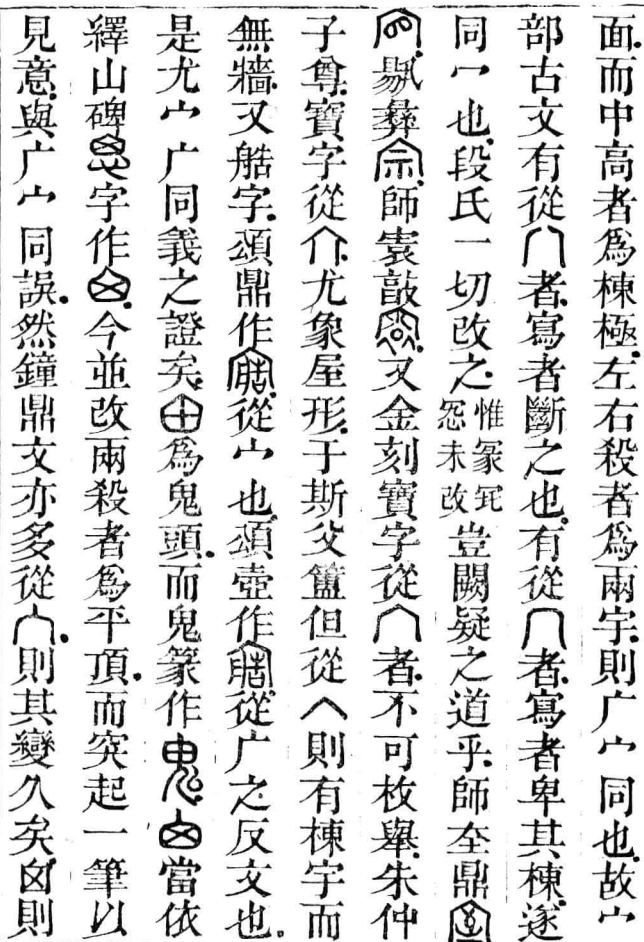 面而中高者爲棟極左右殺者爲兩宇則广宀同也故宀
部古文有從者寫者斷之也有從者寫者卑其棟遂
同冖也段氏一切改之惟冡冟㤪未改豈闕疑之道乎師𡘋鼎
彝師㝨敲又金刻寶字從者不可枚舉朱仲
子尊寶字從尤象屋形于斯父簠但從𠆢則有棟宇而
無牆又䧿字頌鼎作從宀也頌壺作從广之反文也
是尤宀广同義之證矣爲鬼頭而鬼篆作當依
繹山碑字作今並改兩殺者爲平頂而突起一筆以
見意與广宀同誤然鐘鼎文亦多從則其變久矣囟則